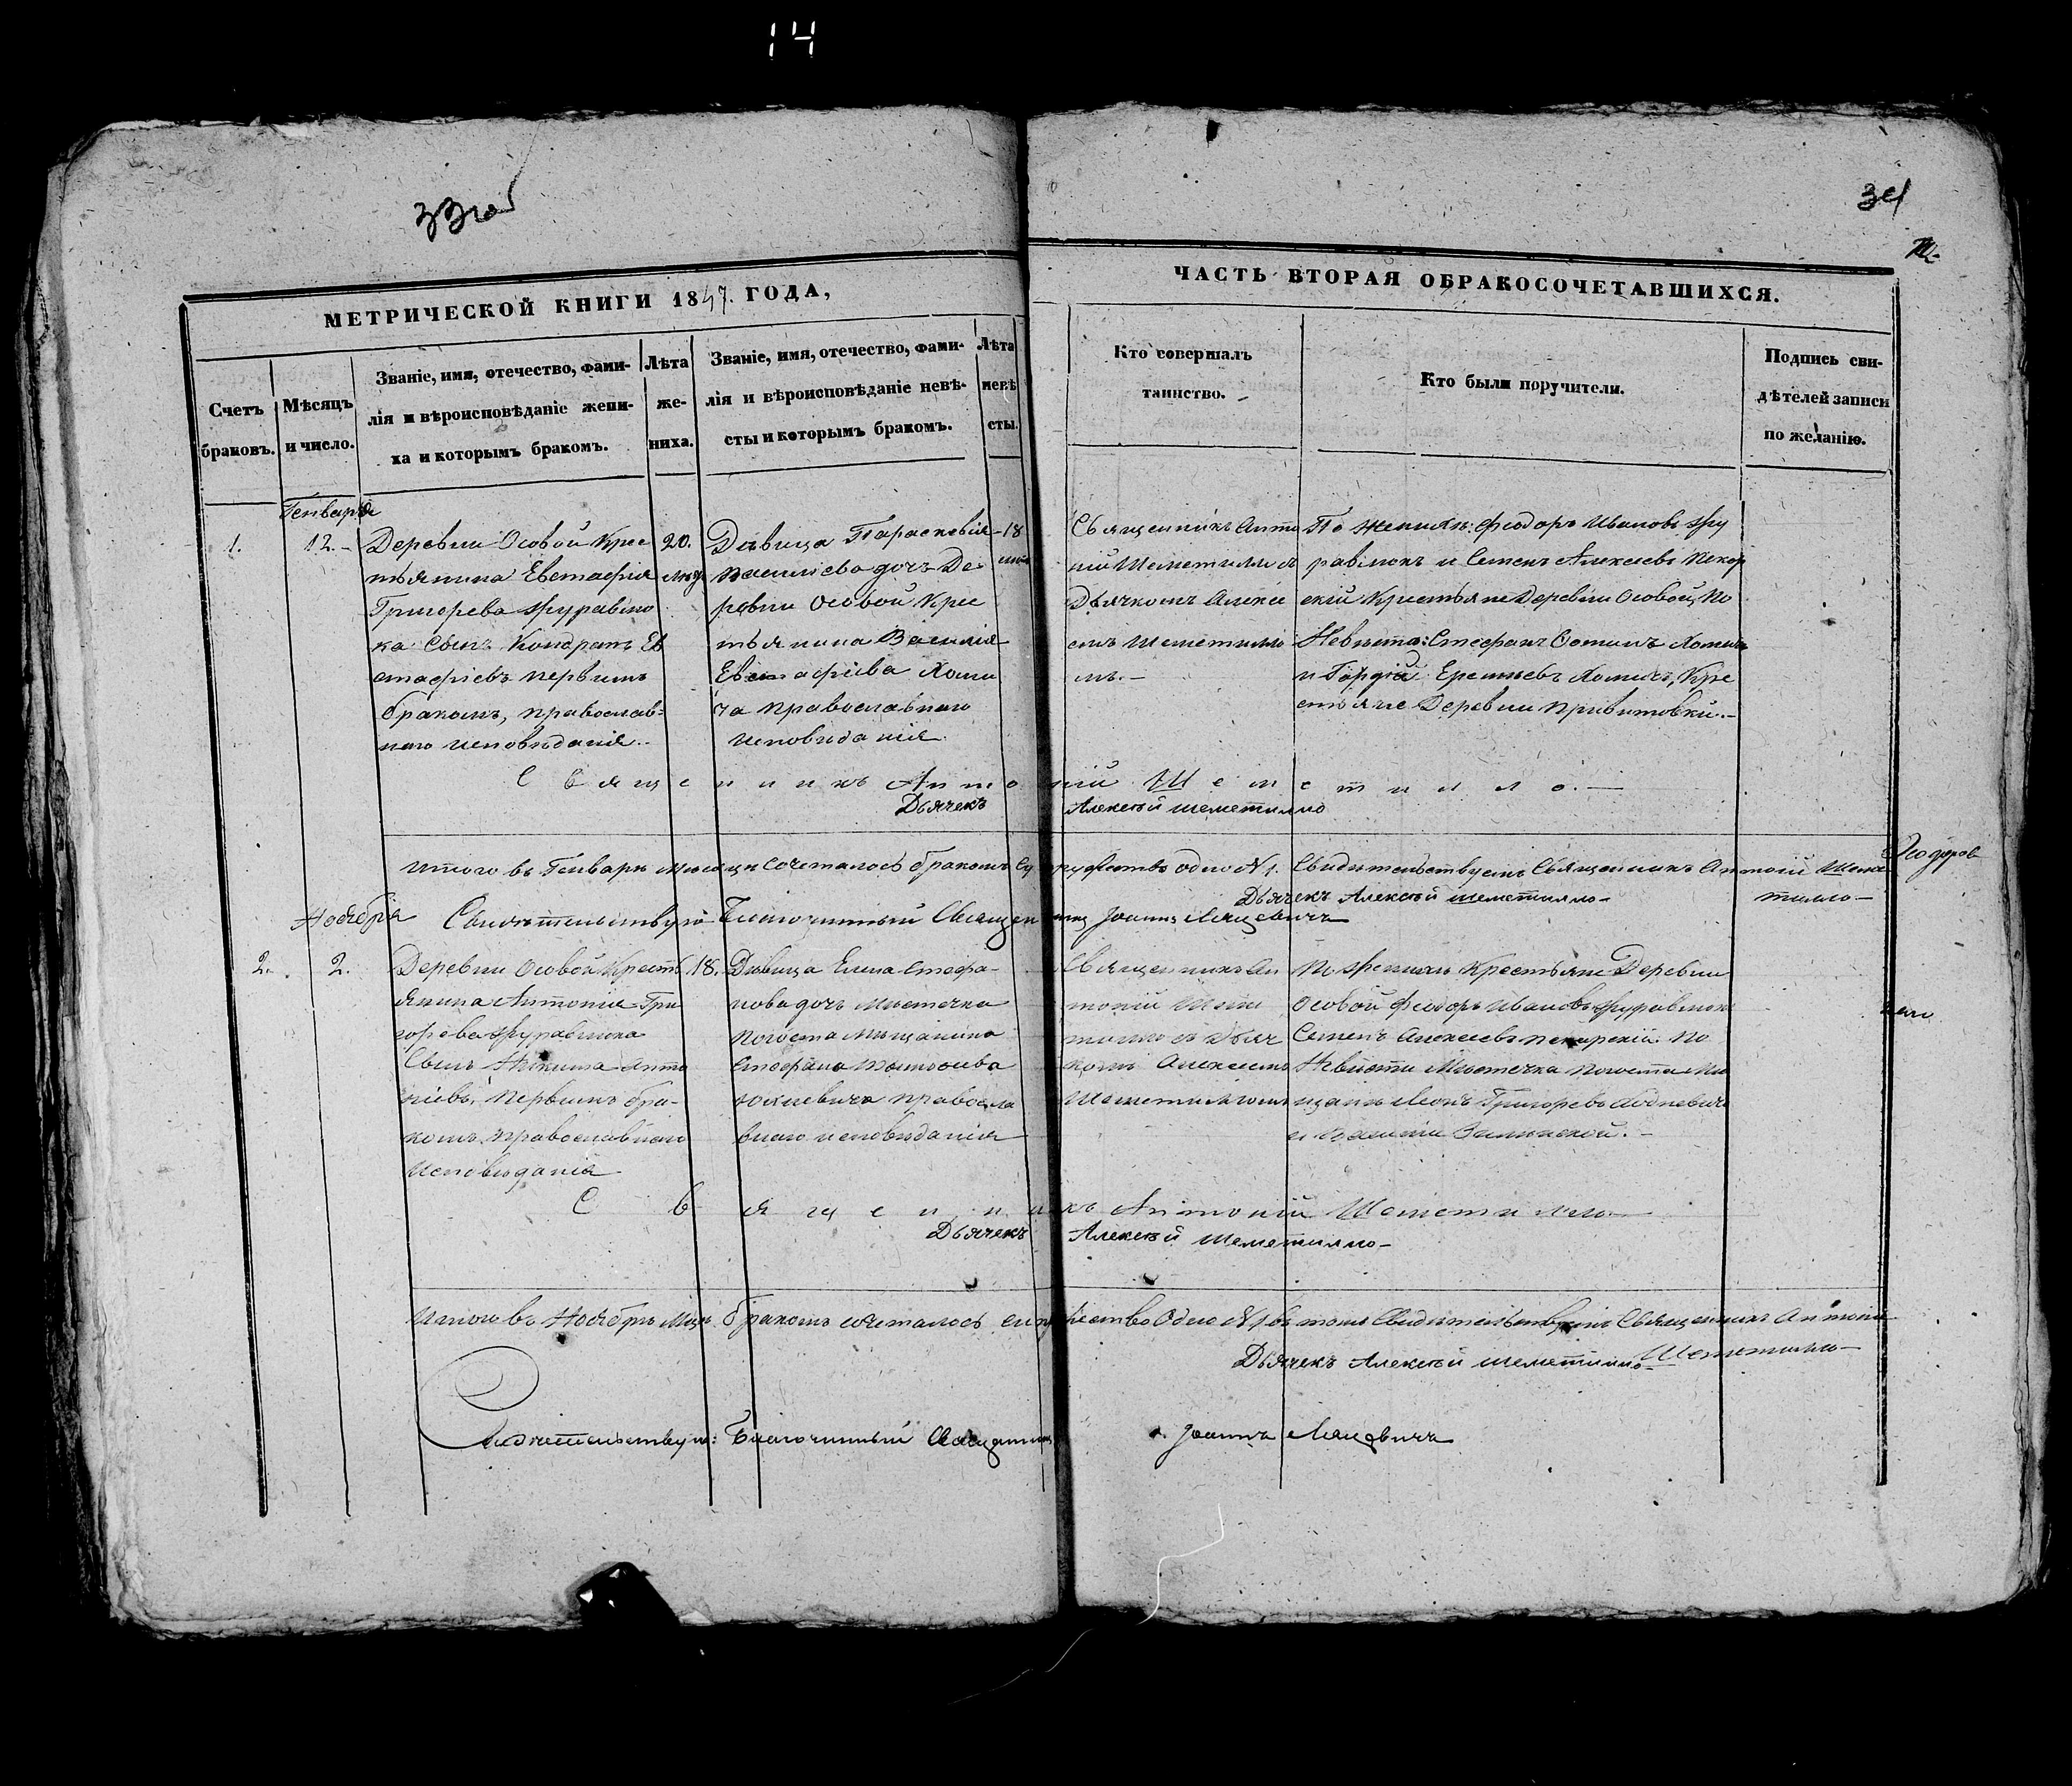 14
33 об
34
МЕТРИЧЕСКОЙ КНИГИ 1847. ГОДА,
Счетъ
браковъ.
Мѣсяцъ
и число.
Званіе, имя, отечество, фами-
лія и вѣроисповѣданіе жени-
ха и которымъ бракомъ.
Лѣта
же-
ниха.
Званіе, имя, отечество, фами-
лія и вѣроисповѣданіе невѣ-
сты и которымъ бракомъ.
Лѣта
невѣ
сты.
ЧАСТЬ ВТОРАЯ ОБРАКОСОЧЕТАВШИХСЯ.
Кто совершалъ
таинство.
Кто были поручители.
Подпись сви-
дѣтелей записи
по желанію.
Генваря
1.
12.-
Деревни Особой Крес
тьянина Евстафія
Григорева Журавлю
ка Сынъ Кондратъ Ев
стафіевъ первымъ
бракомъ, православ-
наго исповѣданія..
20.
Дѣвица Параскевія
Василіева дочъ Де-
ревни Особой Крес
тьянина Василія
Евстафіева Хоми
ча православнаго
исповѣданія.
18
Священникъ Анто
ній Шеметилло съ
Дьячкомъ Алексѣ
емъ Шеметилло
мъ.-
По женихѣ: Федоръ Ивановъ Жу
равлюкъ и Семенъ Алексеевъ Пекар
скій Крестьяне Деревни Особой, По
Невѣстѣ: Стефанъ Хомичъ
и Гордій Еремѣевъ Хомичъ, Кре
стьяне Деревни Привитовки.-
Священникъ Антоній Шеметилло.-
Дьячекъ Алексѣй Шеметилло
Итого въ Генварѣ мѣсяцѣ сочеталось бракомъ супружество одно N 1. Свидѣтельствуемъ Священникъ Антоній Шеме
тилло-
Дьячекъ Алексѣй Шеметилло-
Ноября
Свидѣтельствую Благочинный Священникъ Іоаннъ Лящевичъ
2.
2.
Деревни Особой Кресть
янина Антонія Гри
горева Журавлюка
Сынъ Никита Анто
ніевъ, первымъ бра-
комъ, православнаго
Исповѣданія
18.
Дѣвица Елена Стефа-
нова дочъ мѣстечка
Погоста Мѣщанина
Стефана
православ
внаго исповѣданія
Священникъ Ан
тоній Шеме
тилло съ Дьяч
комъ Алексеемъ
Шеметилломъ
По женихѣ Крестьяне Деревни
Особой Федоръ Ивановъ Журавлюкъ
Семенъ Алексеевъ Пекарскій. По
Невѣсти Мѣстечка Погоста Мѣ
щане Леонъ Григоревъ
и Василій
Священникъ Антоній Шеметилло-
Дьячекъ Алексѣй Шеметилло-
Итого въ Ноябрѣ Мцѣ бракомъ сочеталось супружество Одно N 1 въ томъ Свидѣтельствуемъ Священникъ Антоній
Шеметилло-
Дьячекъ Алексѣй Шеметилло
Свидѣтельствую: Благочинный Священникъ Іоаннъ Лящевичъ